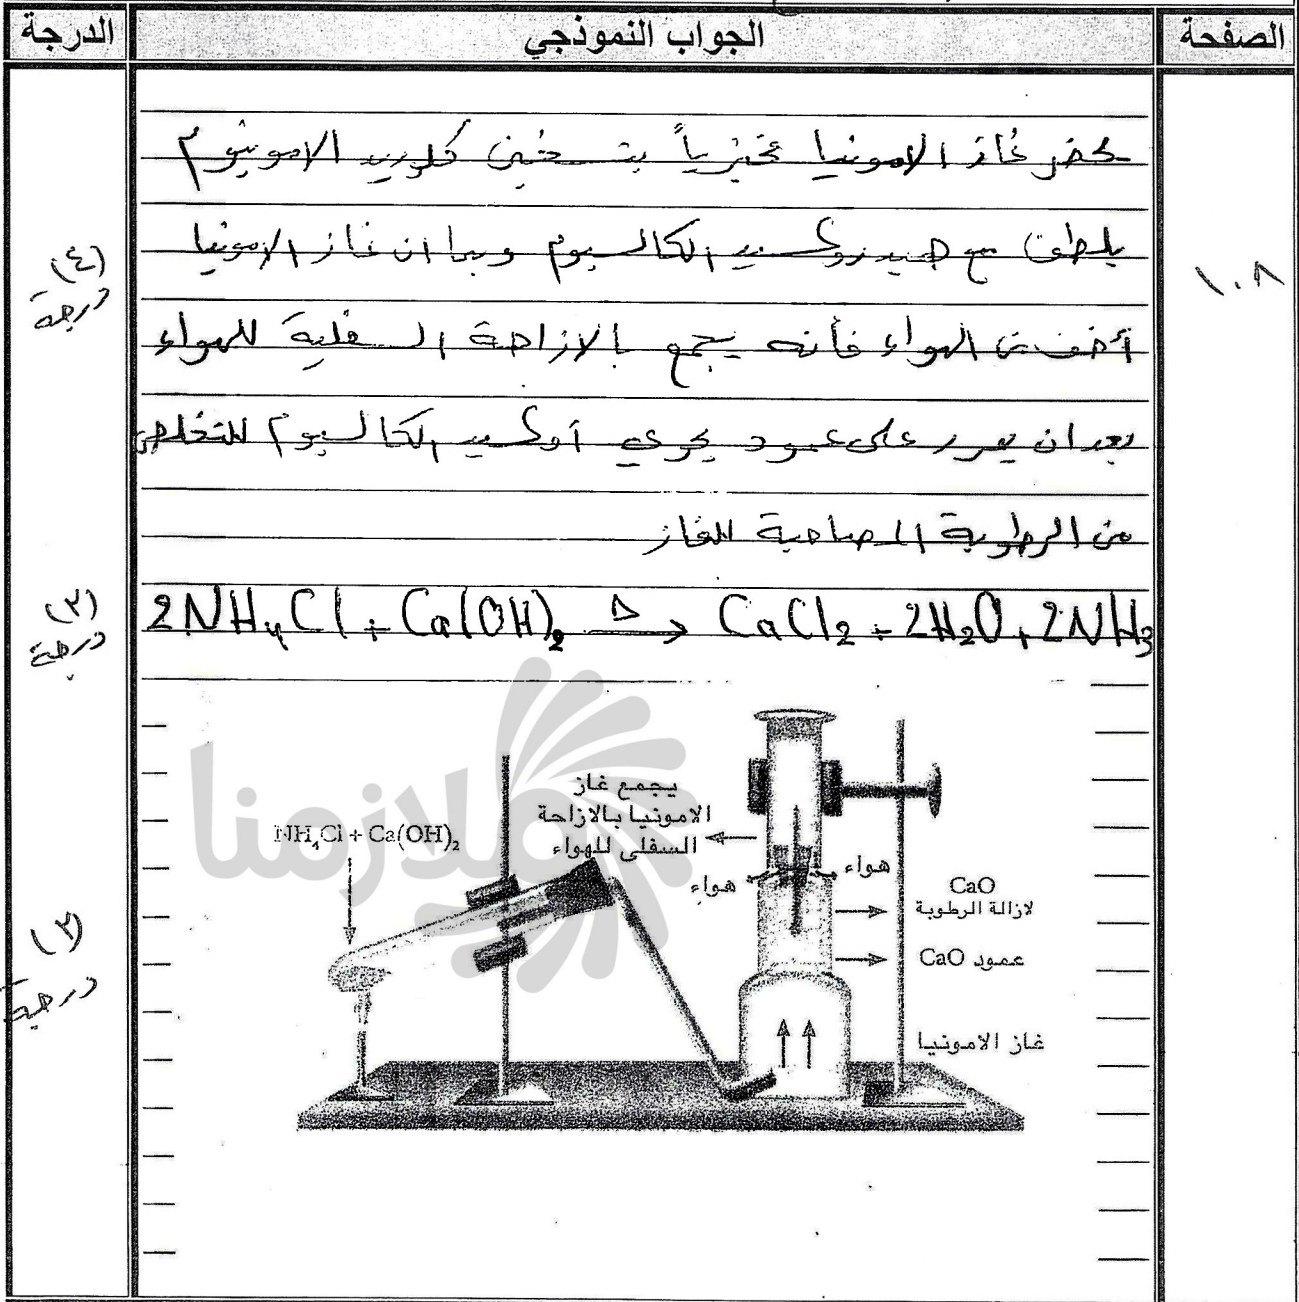 الصفحة
الجواب النموذجي
الدرجة
يحضر غاز الامونيا مختبرياً بتسخين كلوريد الامونيوم
بلطف مع هيدروكسيد الكالسيوم وبما ان غاز الامونيا
أخف من الهواء فأنه يجمع بالازاحة السفلية للهواء
بعد ان يمرر على عمود يحوي أوكسيد الكالسيوم للتخلص
من الرطوبة المصاحبة للغاز
١٠٨
(٤)
درجة
2NH4Cl + Ca(OH)2 Δ→ CaCl2 + 2H2O + 2NH3
درجة
يجمع غاز
الامونيا بالازاحة
السفلى للهواء
NH4Cl + Ca(OH)2
هواء
هواء
CaO
لازالة الرطوبة
عمود CaO
غاز الامونيا
درجة
ملازمنا